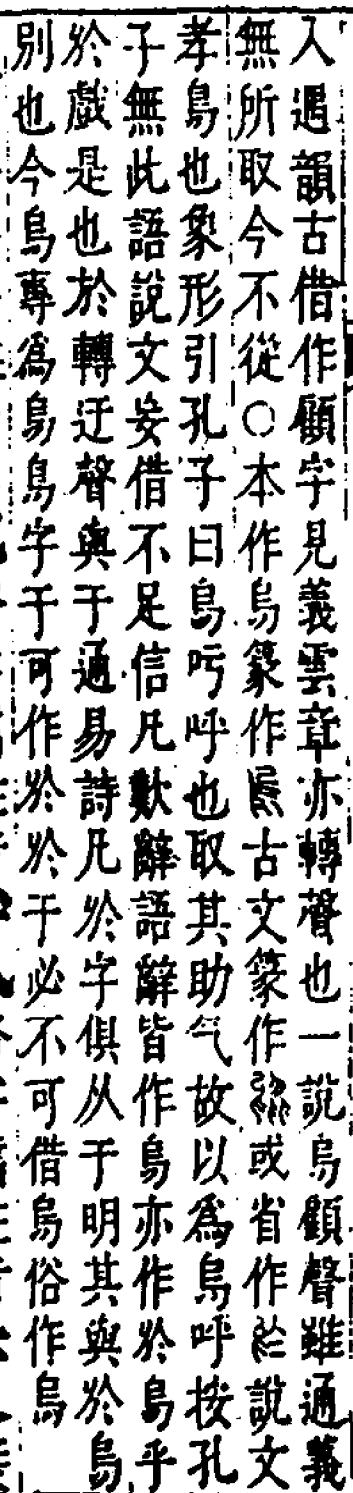 入遇韻古借作顧字見義雲章亦轉聲也一說烏顧聲雖通義
無所取今不從○本作烏篆作古文篆作或省作於說文
孝烏也象形引孔子曰烏亏呼也取其助气故以為烏呼按孔
子無此語說文妄借不足信凡歎辭語辭皆作烏亦作於烏乎
於戲是也於轉迂聲與于通易詩凡於字俱从于明其與於烏
別也今烏專為烏鳥字于可作於於于必不可借烏俗作烏